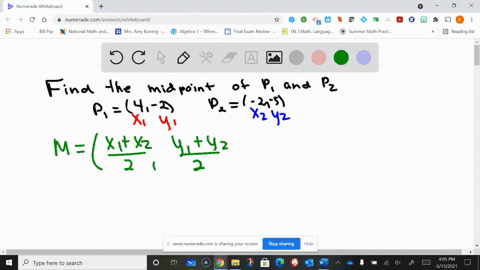 Numerade Whiteboard
numerade.com/answers/whiteboard/
Apps
Bill Pay
National Math and...
Mrs. Amy Koning -...
Algebra 1 - Wheren...
Final Exam Review -...
IXL | Math, Languag...
Summer Math Pract...
Reading list
Find the midpoint of P1 and P2
P1 = (4,-2) P2 = (-2,-5)
x1 y1 x2 y2
M = ( x1 + x2 , y1 + y2
2 2
www.numerade.com is sharing your screen.
Stop sharing
Hide
Type here to search
4:05 PM
6/13/2021